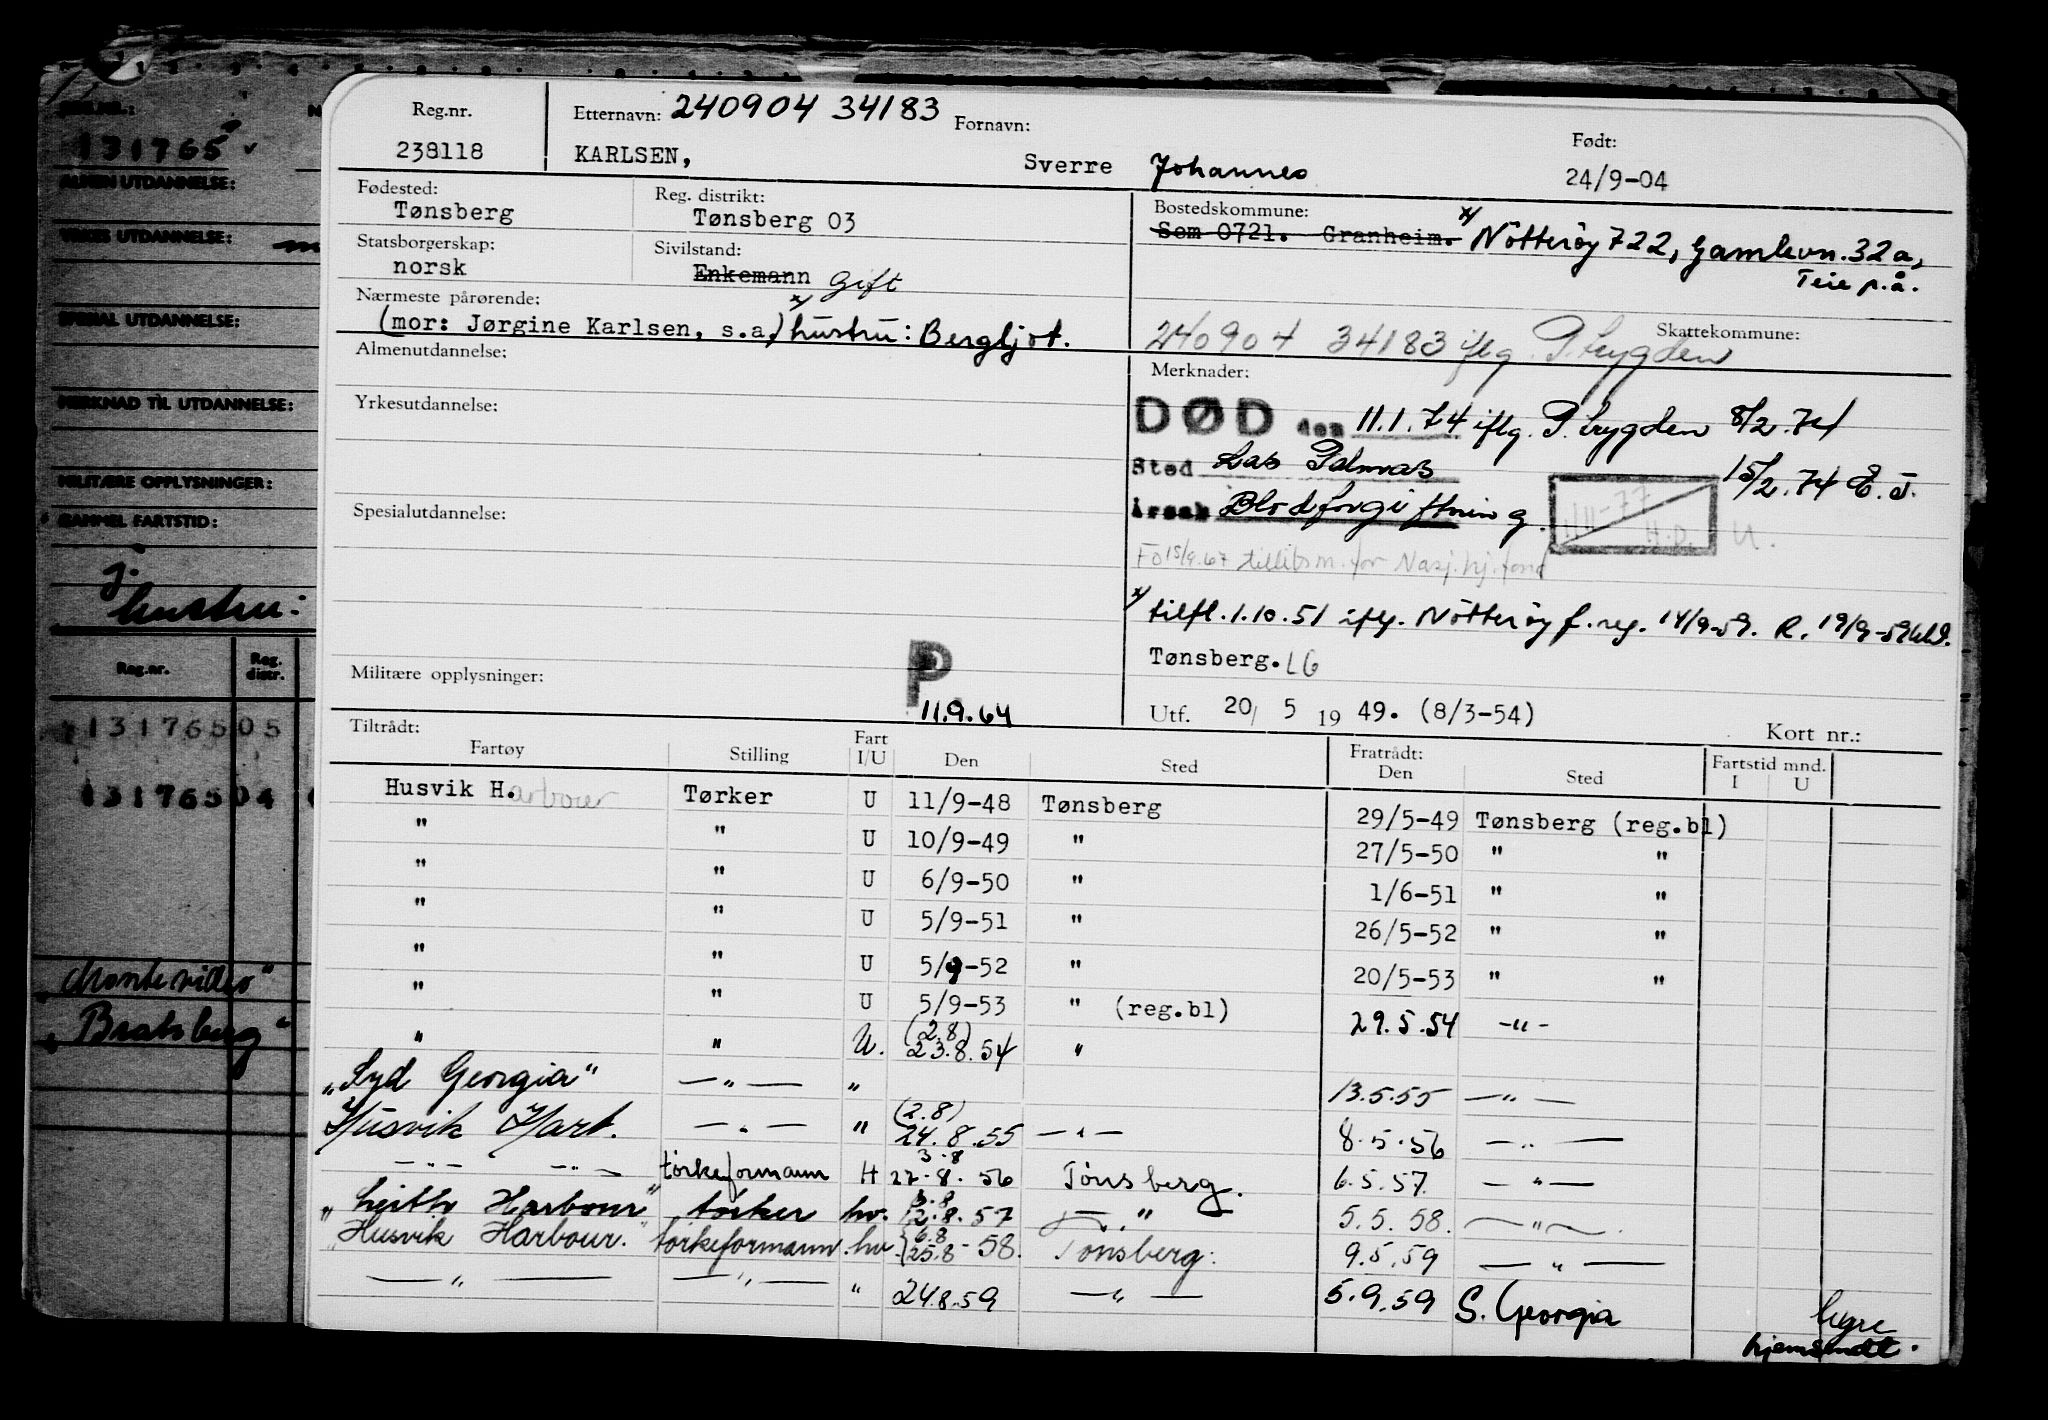 Reg.nr.
238118
Etternavn: 240904 34183
KARLSEN,
Fornavn:
Sverre Johannes
Født:
24/9-04
Fødested:
Tønsberg
Reg. distrikt:
Tønsberg 03
Bostedskommune:
Sem 0721. Granheim. x/ Nötteröy 722, Gamlevn. 32a,
Teie p.å.
Statsborgerskap:
norsk
Sivilstand:
Enkemann Gift
Nærmeste pårørende:
(mor: Jørgine Karlsen, s.a.) x/ hustru: Bergljot.
240904 34183 iflg. P. trygden
Skattekommune:
Almenutdannelse:
Yrkesutdannelse:
Spesialutdannelse:
Militære opplysninger:
P
11.9.64
Merknader:
DØD den 11.1.74 iflg. P. trygden 8/2.74
Sted Las Palmas 15/2.74 E.J.
Årsak Blodforgiftning.
FO 15/9.67 tillitsm. for Nasj.hj.fond
x/ tilfl. 1.10.51 iflg. Nötteröy f.reg. 14/9-59. R. 19/9-59
Tønsberg. LG
Utf. 20/ 5 19 49. (8/3-54)
Kort nr.:
Tiltrådt:
Fartøy Stilling Fart I/U Den Sted Fratrådt: Den Sted Fartstid mnd. I U
Husvik Harbour Tørker U 11/9-48 Tønsberg 29/5-49 Tønsberg (reg.bl)
" " U 10/9-49 " 27/5-50 " "
" " U 6/9-50 " 1/6-51 " "
" " U 5/9-51 " 26/5-52 " "
" " U 5/9-52 " 20/5-53 " "
" " U 5/9-53 " (reg.bl) 29.5.54 -"-
" " U. (2.8) 23.8.54 "
"Syd Georgia" -"- " 13.5.55 -"-
Husvik Harb. -"- " (2.8) 24.8.55 -"- 8.5.56 -"-
-"- -"- törkeformann H 3.8 27.8.56 Tönsberg. 6.5.57. -"-
"Leith Harbour" törker hv. 3.8 12.8.57 -"- 5.5.58. -"-
"Husvik Harbour." törkeformann hv. 6.8 25.8-58. Tönsberg. 9.5.59 -"-
-"- -"- " 24.8.59 -"- 5.9.59 S. Georgia
hjemsendt.
REG.NR.:
131765
ALMEN UTDANNELSE:
YRKES UTDANNELSE:
SPESIAL UTDANNELSE:
MERKNAD TIL UTDANNELSE:
MILITÆRE OPPLYSNINGER:
GAMMEL FARTSTID:
hustru:
Reg.nr. Reg. distr.
131765 05
131765 04
"Montevideo"
"Bratsberg"